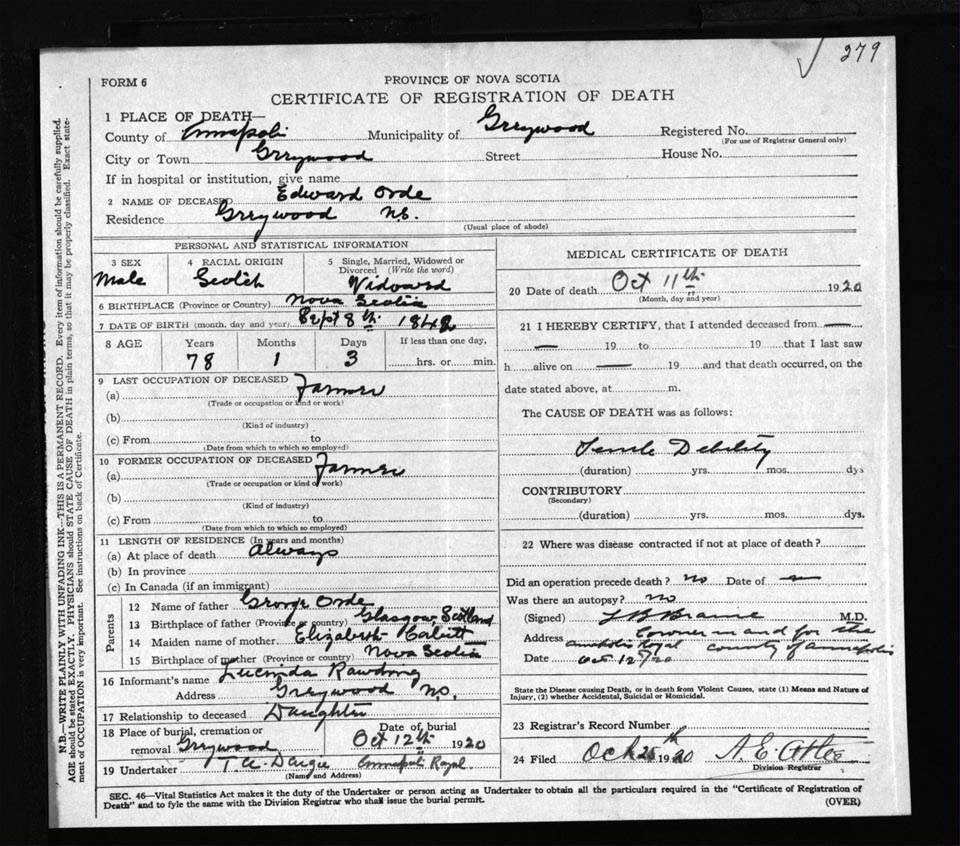 279
FORM 6
PROVINCE OF NOVA SCOTIA
CERTIFICATE OF REGISTRATION OF DEATH
1 PLACE OF DEATH—
County of Annapolis Municipality of Greywood Registered No.
(For use of Registrar General only)
City or Town Greywood Street House No.
If in hospital or institution, give name
2 NAME OF DECEASED Edward Orde
Residence Greywood N.S.
(Usual place of abode)
PERSONAL AND STATISTICAL INFORMATION
3 SEX 4 RACIAL ORIGIN 5 Single, Married, Widowed or
Divorced (Write the word)
Male Scotch Widoward
6 BIRTHPLACE (Province or Country) Nova Scotia
7 DATE OF BIRTH (month, day and year) Sept 8th 1842
8 AGE Years Months Days If less than one day,
78 1 3 hrs. or min.
9 LAST OCCUPATION OF DECEASED
(a) Farmer
(Trade or occupation or kind or work)
(b)
(Kind of industry)
(c) From to
(Date from which to which so employed)
10 FORMER OCCUPATION OF DECEASED
(a) Farmer
(Trade or occupation or kind of work)
(b)
(Kind of industry)
(c) From to
(Date from which to which so employed)
11 LENGTH OF RESIDENCE (In years and months)
(a) At place of death always
(b) In province
(c) In Canada (if an immigrant)
Parents
12 Name of father George Orde
13 Birthplace of father (Province or country) Glasgow Scotland
14 Maiden name of mother Elizabeth
15 Birthplace of mother (Province or country) Nova Scotia
16 Informant's name Lucinda Rawding
Address Greywood N.S.
17 Relationship to deceased Daughter
18 Place of burial, cremation or Date of burial
removal Greywood Oct 12th 1920
19 Undertaker T. A. Annapolis Royal
(Name and Address)
MEDICAL CERTIFICATE OF DEATH
20 Date of death Oct 11th 1920
(Month, day and year)
21 I HEREBY CERTIFY, that I attended deceased from —
— 19 to 19 that I last saw
h alive on — 19 and that death occurred, on the
date stated above, at m.
The CAUSE OF DEATH was as follows:
Senile Debility
(duration) yrs. mos. dys
CONTRIBUTORY
(Secondary)
(duration) yrs. mos. dys.
22 Where was disease contracted if not at place of death?
Did an operation precede death? no Date of —
Was there an autopsy? no
(Signed) M.D.
Address Coroner in and for the
Annapolis Royal county of Annapolis
Date Oct 12/20
State the Disease causing Death, or in death from Violent Causes, state (1) Means and Nature of
Injury, (2) whether Accidental, Suicidal or Homicidal.
23 Registrar's Record Number
24 Filed Oct 25th 1920 A. E.
Division Registrar
SEC. 46—Vital Statistics Act makes it the duty of the Undertaker or person acting as Undertaker to obtain all the particulars required in the "Certificate of Registration of
Death" and to fyle the same with the Division Registrar who shall issue the burial permit.
(OVER)
N.B.—WRITE PLAINLY, WITH UNFADING INK—THIS IS A PERMANENT RECORD. Every item of information should be carefully supplied.
AGE should be stated EXACTLY. PHYSICIANS should STATE CAUSE OF DEATH in plain terms, so that it may be properly classified. Exact state-
ment of OCCUPATION is very important. See instructions on back of Certificate.